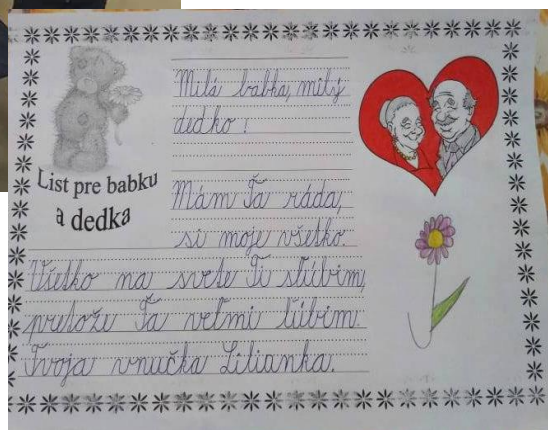 List pre babku
a dedka
Milá babka, milý
dedko!
Mám Ťa ráda,
si moje všetko.
Všetko na svete Ti sľúbim,
pretože Ťa veľmi ľúbim.
Tvoja vnučka Lilianka.